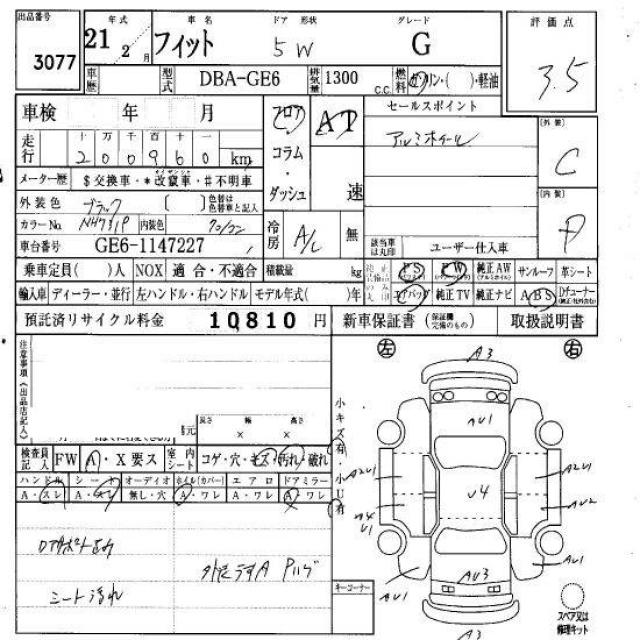 出品番号 3077
年式 21 年 2 月
車名 フィット
ドア 形状 5W
グレード G
評価点 3.5
車歴
型式 DBA-GE6
排気量 1300 C.C.
燃料 ガソリン・( )・軽油
車検 年 月
フロア コラム・ダッシュ
AT 速
セールスポイント
アルミホイール
走行 十 万 千 百 十 一
200960 km
メーター歴 $交換車・*改竄車・#不明車
[外装] C
[内装] D
外装色 ブラック [ ] 色替は元色替車と記入
カラーNo. NH731P 内装色
車台番号 GE6-1147227
冷房 A/C 無
該当車は丸印 ユーザー仕入車
乗車定員( )人 NOX 適合・不適合 積載量 kg
PS PW 純正AW サンルーフ 革シート
輸入車 ディーラー・並行 左ハンドル・右ハンドル モデル年式( )年
エアバッグ 純正TV 純正ナビ ABS Dチューナー
預託済リサイクル料金 10810 円
新車保証書 (保証欄完備のもの) 取扱説明書
注意事項《出品店記入》
長さ 幅 高さ
× ×
検査員記入 FW A・X要ス 室内シート コゲ・穴・キズ・汚れ・破れ
ハンドル シート オーディオ ホイル(カバー) エアロ ドアミラー
A・スレ A・スレ 無し・穴 A・ワレ A・ワレ A・ワレ
シート汚れ
小キズ有・小U有
左 右
A3
AU1
A2U1 A2U1
U4
U4
U1
AU2
AU1 AU3 AU1
A3
キーコーナー
スペア又は修理キット